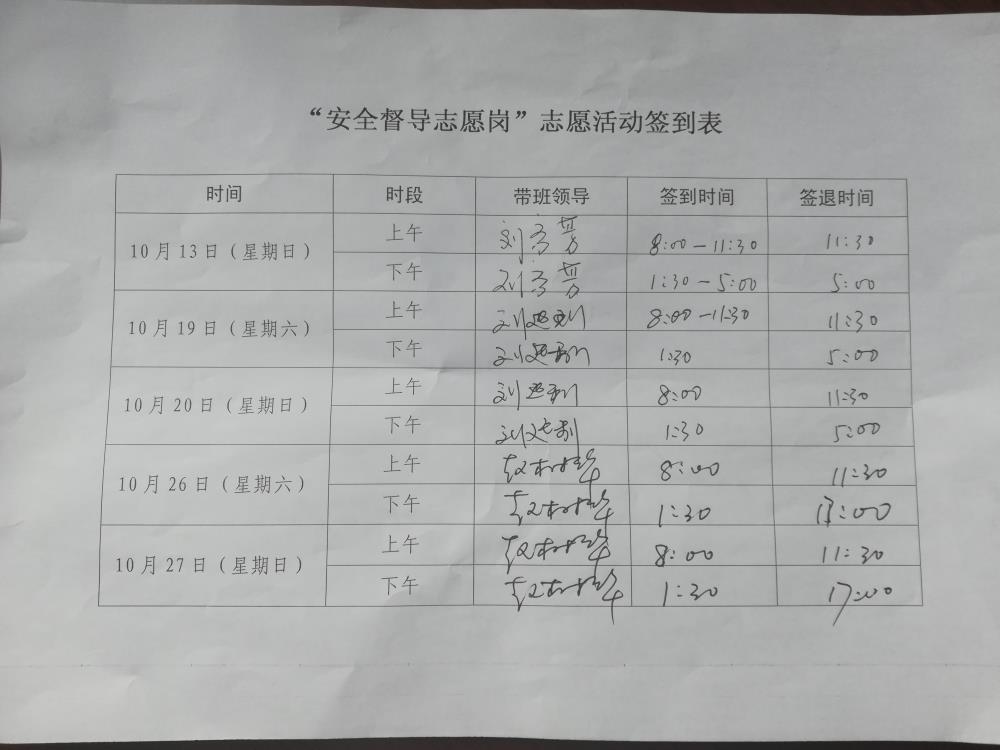 “安全督导志愿岗”志愿活动签到表
时间 时段 带班领导 签到时间 签退时间
10月13日（星期日） 上午 刘 8:00-11:30 11:30
下午 刘 1:30-5:00 5:00
10月19日（星期六） 上午 刘 8:00-11:30 11:30
下午 刘 1:30 5:00
10月20日（星期日） 上午 刘 8:00 11:30
下午 刘 1:30 5:00
10月26日（星期六） 上午 赵 8:00 11:30
下午 赵 1:30 :00
10月27日（星期日） 上午 赵 8:00 11:30
下午 赵 1:30 17:00